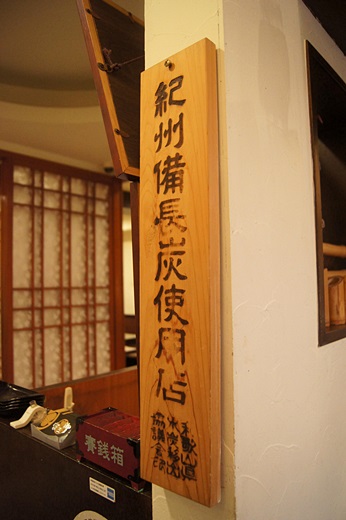 紀州備長炭使用店
賽銭箱